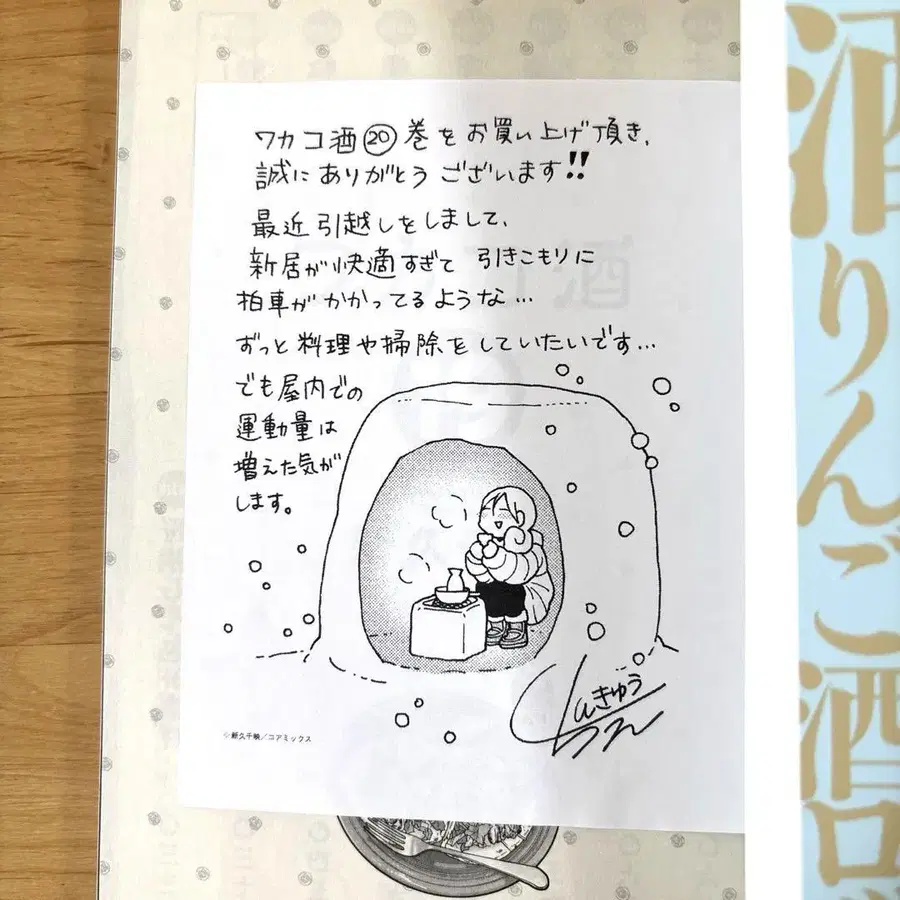 ワカコ酒⑳巻をお買い上げ頂き、
誠にありがとうございます!!
最近引越しをしまして、
新居が快適すぎて引きこもりに
拍車がかかってるような…
ずっと料理や掃除をしていたいです…
でも屋内での
運動量は
増えた気が
します。
しんきゅう
ちえ
©新久千映/コアミックス
酒りんご酒